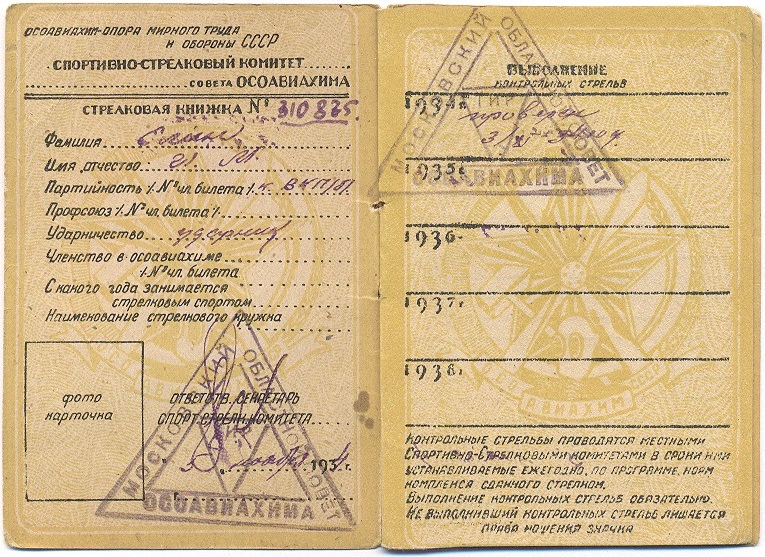 ОСОАВИАХИМ-ОПОРА МИРНОГО ТРУДА
И ОБОРОНЫ СССР
СПОРТИВНО-СТРЕЛКОВЫЙ КОМИТЕТ
СОВЕТА ОСОАВИАХИМА
СТРЕЛКОВАЯ КНИЖКА № 310875.
Фамилия
Имя отчество
Партийность и № чл. билета чл. ВКП/б/
Профсоюз и № чл. билета
Ударничество ударник
Членство в осоавиахиме
и № чл. билета
С какого года занимается
стрелковым спортом
Наименование стрелкового кружка
фото
карточка
ОТВЕТСТВ. СЕКРЕТАРЬ
СПОРТ. СТРЕЛК. КОМИТЕТА
ноября 1934 г.
МОСКОВСКИЙ ОБЛАСТНОЙ СОВЕТ
ОСОАВИАХИМА
ВЫПОЛНЕНИЕ
КОНТРОЛЬНЫХ СТРЕЛЬБ
1934 г.
проверен
1935 г.
МОСКОВСКИЙ ОБЛАСТНОЙ СОВЕТ
ОСОАВИАХИМА
1936 г.
1937 г.
1938 г.
ОСОАВИАХИМ
КОНТРОЛЬНЫЕ СТРЕЛЬБЫ ПРОВОДЯТСЯ МЕСТНЫМИ
СПОРТИВНО-СТРЕЛКОВЫМИ КОМИТЕТАМИ В СРОКИ ИМИ
УСТАНАВЛИВАЕМЫЕ ЕЖЕГОДНО, ПО ПРОГРАММЕ, НОРМ
КОМПЛЕКСА СДАННОГО СТРЕЛКОМ.
ВЫПОЛНЕНИЕ КОНТРОЛЬНЫХ СТРЕЛЬБ ОБЯЗАТЕЛЬНО.
НЕ ВЫПОЛНИВШИЙ КОНТРОЛЬНЫХ СТРЕЛЬБ ЛИШАЕТСЯ
ПРАВА НОШЕНИЯ ЗНАЧКА